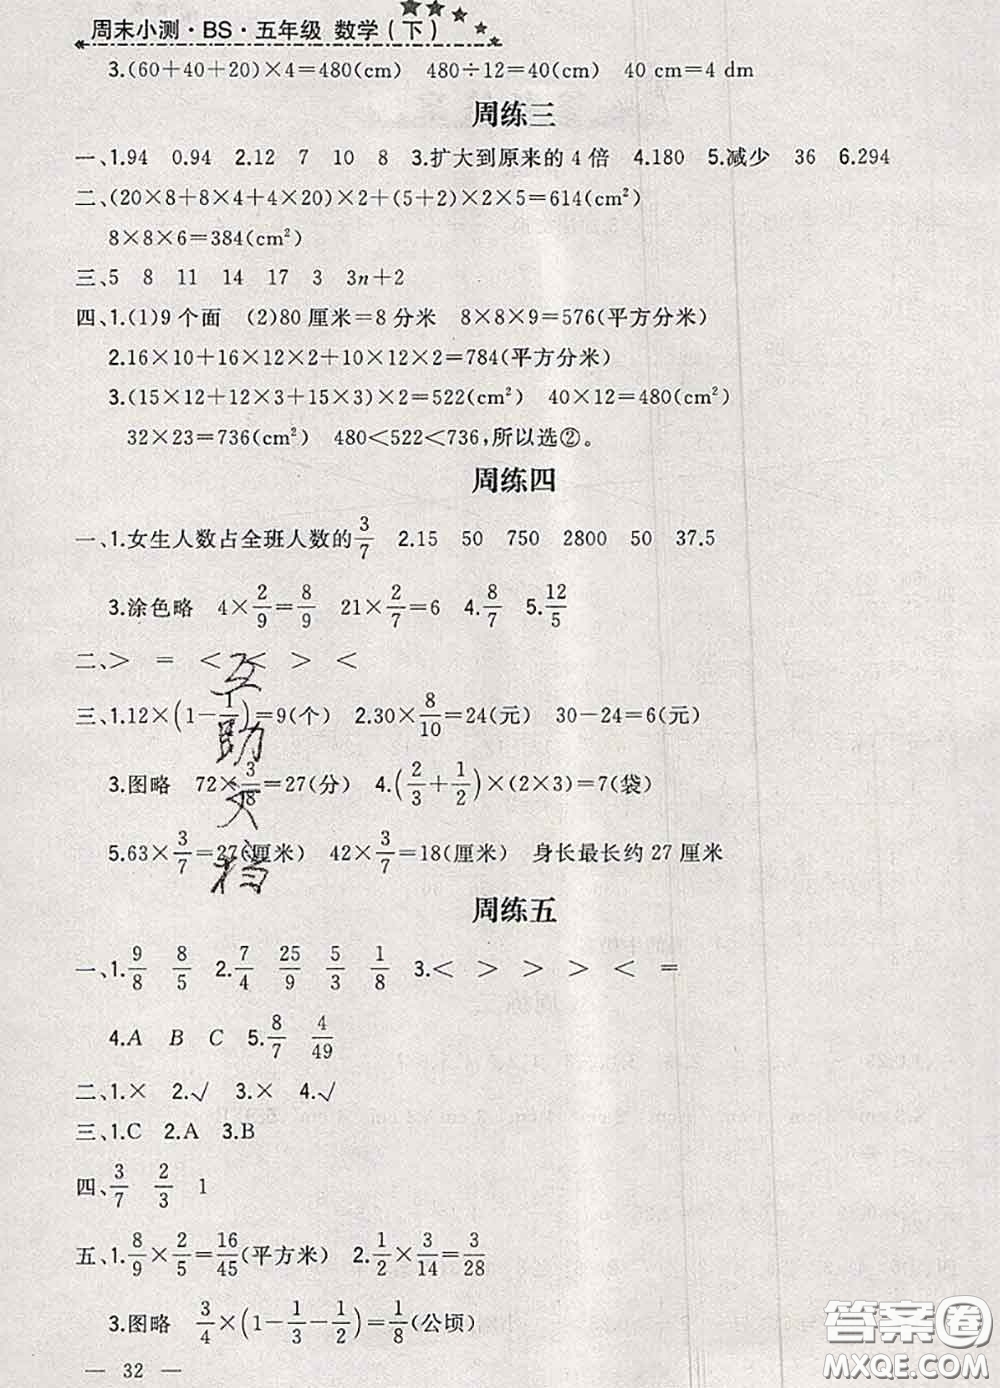 周末小测·BS·五年级 数学(下)
3.(60+40+20)×4=480(cm) 480÷12=40(cm) 40 cm=4 dm
周练三
一、1.94 0.94 2.12 7 10 8 3.扩大到原来的4倍 4.180 5.减少 36 6.294
二、(20×8+8×4+4×20)×2+(5+2)×2×5=614(cm²)
8×8×6=384(cm²)
三、5 8 11 14 17 3 3n+2
四、1.(1)9个面 (2)80厘米=8分米 8×8×9=576(平方分米)
2.16×10+16×12×2+10×12×2=784(平方分米)
3.(15×12+12×3+15×3)×2=522(cm²) 40×12=480(cm²)
32×23=736(cm²) 480<522<736,所以选②。
周练四
一、1.女生人数占全班人数的3/7 2.15 50 750 2800 50 37.5
3.涂色略 4×2/9=8/9 21×2/7=6 4.8/7 5.12/5
二、> = < < > <
三、1.12×(1-1/4)=9(个) 2.30×8/10=24(元) 30-24=6(元)
3.图略 72×3/8=27(分) 4.(2/3+1/2)×(2×3)=7(袋)
5.63×3/7=27(厘米) 42×3/7=18(厘米) 身长最长约27厘米
互助文档
周练五
一、1.9/8 8/5 2.7/4 25/9 5/3 1/8 3.< > > > < =
4.A B C 5.8/7 4/49
二、1.× 2.√ 3.× 4.√
三、1.C 2.A 3.B
四、3/7 2/3 1
五、1.8/9×2/5=16/45(平方米) 2.1/2×3/14=3/28
3.图略 3/4×(1-1/3-1/2)=1/8(公顷)
— 32 —
答案圈
MXQE.COM